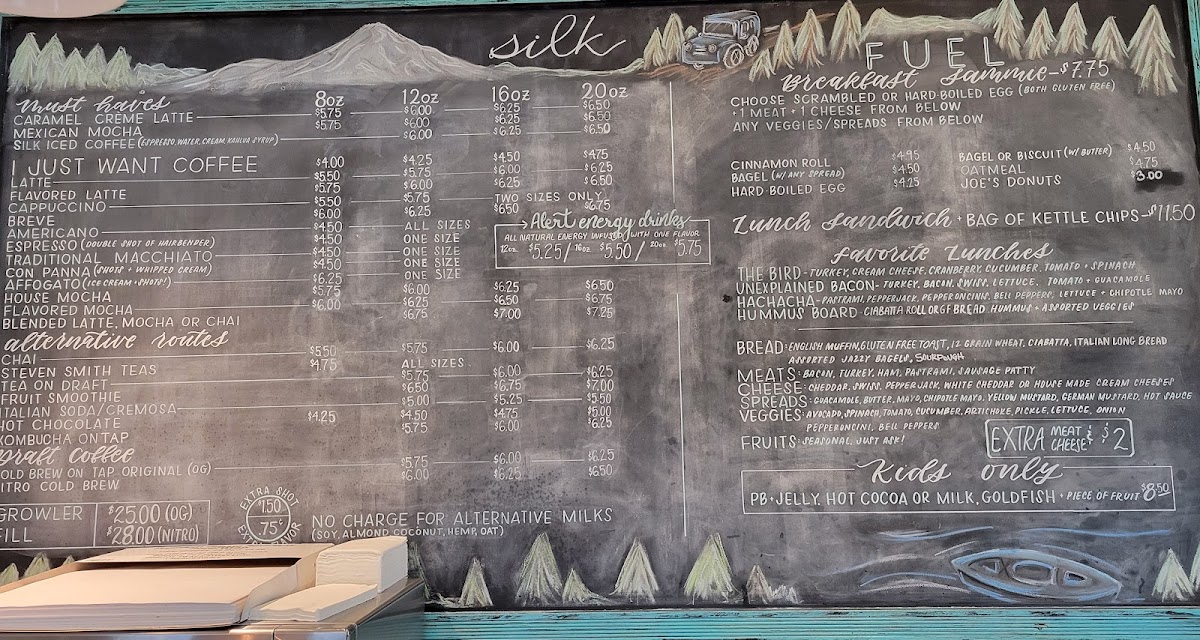 silk
must haves 8oz 12oz 16oz 20oz
CARAMEL CRÈME LATTE $5.75 $6.00 $6.25 $6.50
MEXICAN MOCHA $5.75 $6.00 $6.25 $6.50
SILK ICED COFFEE (ESPRESSO, WATER, CREAM, KAHLUA SYRUP) $6.00 $6.25 $6.50
I JUST WANT COFFEE $4.00 $4.25 $4.50 $4.75
LATTE $5.50 $5.75 $6.00 $6.25
FLAVORED LATTE $5.75 $6.00 $6.25 $6.50
CAPPUCCINO $5.50 $5.75 TWO SIZES ONLY
BREVE $6.00 $6.25 $6.50 $6.75
AMERICANO $4.50 ALL SIZES
ESPRESSO (DOUBLE SHOT OF HAIRBENDER) $4.50 ONE SIZE
TRADITIONAL MACCHIATO $4.50 ONE SIZE
CON PANNA (SHOTS + WHIPPED CREAM) $4.50 ONE SIZE
AFFOGATO (ICE CREAM + SHOTS!) $6.25 ONE SIZE
HOUSE MOCHA $5.75 $6.00 $6.25 $6.50
FLAVORED MOCHA $6.00 $6.25 $6.50 $6.75
BLENDED LATTE, MOCHA OR CHAI $6.75 $7.00 $7.25
alternative routes
CHAI $5.50 $5.75 $6.00 $6.25
STEVEN SMITH TEAS $4.75 ALL SIZES
TEA ON DRAFT $5.75 $6.00 $6.25
FRUIT SMOOTHIE $6.50 $6.75 $7.00
ITALIAN SODA/CREMOSA $5.00 $5.25 $5.50
HOT CHOCOLATE $4.25 $4.50 $4.75 $5.00
KOMBUCHA ON TAP $5.75 $6.00 $6.25
Draft Coffee
COLD BREW ON TAP ORIGINAL (OG) $5.75 $6.00 $6.25
NITRO COLD BREW $6.00 $6.25 $6.50
GROWLER $25.00 (OG)
FILL $28.00 (NITRO)
EXTRA SHOT
$1.50
75¢
EXTRA FLAVOR
NO CHARGE FOR ALTERNATIVE MILKS
(SOY, ALMOND COCONUT, HEMP, OAT)
Alert energy drinks
ALL NATURAL ENERGY INFUSED WITH ONE FLAVOR
12oz. $5.25 / 16oz $5.50 / 20oz $5.75
FUEL
Breakfast Sammie - $7.75
CHOOSE SCRAMBLED OR HARD-BOILED EGG (BOTH GLUTEN FREE)
+ 1 MEAT + 1 CHEESE FROM BELOW
ANY VEGGIES/SPREADS FROM BELOW
CINNAMON ROLL $4.95 BAGEL OR BISCUIT (W/ BUTTER) $4.50
BAGEL (W/ ANY SPREAD) $4.50 OATMEAL $4.75
HARD-BOILED EGG $4.25 JOE'S DONUTS $3.00
Lunch Sandwich + BAG OF KETTLE CHIPS - $11.50
favorite Lunches
THE BIRD - TURKEY, CREAM CHEESE, CRANBERRY, CUCUMBER, TOMATO + SPINACH
UNEXPLAINED BACON - TURKEY, BACON, SWISS, LETTUCE, TOMATO + GUACAMOLE
HACHACHA - PASTRAMI, PEPPERJACK, PEPPERONCINIS, BELL PEPPERS, LETTUCE + CHIPOTLE MAYO
HUMMUS BOARD - CIABATTA ROLL OR GF BREAD HUMMUS + ASSORTED VEGGIES
BREAD: ENGLISH MUFFIN, GLUTEN FREE TOAST, 12 GRAIN WHEAT, CIABATTA, ITALIAN LONG BREAD
ASSORTED JAZZY BAGELS, SOURDOUGH
MEATS: BACON, TURKEY, HAM, PASTRAMI, SAUSAGE PATTY
CHEESE: CHEDDAR, SWISS, PEPPERJACK, WHITE CHEDDAR OR HOUSE MADE CREAM CHEESES
SPREADS: GUACAMOLE, BUTTER, MAYO, CHIPOTLE MAYO, YELLOW MUSTARD, GERMAN MUSTARD, HOT SAUCE
VEGGIES: AVOCADO, SPINACH, TOMATO, CUCUMBER, ARTICHOKE, PICKLE, LETTUCE, ONION
PEPPERONCINI, BELL PEPPERS
FRUITS: SEASONAL, JUST ASK!
EXTRA MEAT & CHEESE $2
Kids only
PB + JELLY, HOT COCOA OR MILK, GOLDFISH + PIECE OF FRUIT $8.50